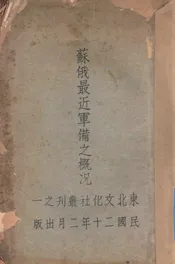 蘇俄最近軍備之概況
東北文化社叢刊之一
民國二十年二月出版